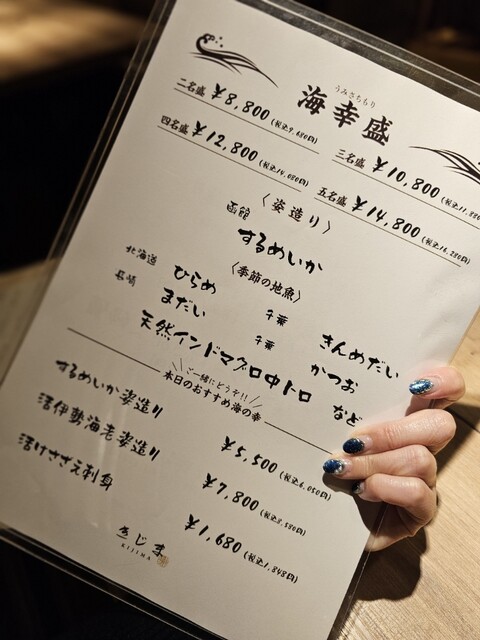 うみさちもり
海幸盛
二名盛 ¥8,800(税込9,680円)
三名盛 ¥10,800(税込11,880
四名盛 ¥12,800(税込14,080円)
五名盛 ¥14,800(税込16,280円)
〈姿造り〉
函館 するめいか
〈季節の地魚〉
北海道 ひらめ 千葉 きんめだい
長崎 まだい 千葉 かつお
天然インドマグロ中トロ など
ご一緒にどうぞ!!
本日のおすすめ海の幸
するめいか姿造り ¥5,500(税込6,050円)
活伊勢海老姿造り ¥7,800(税込8,580円)
活けさざえ刺身 ¥1,680(税込1,848円)
きじま
KIJIMA